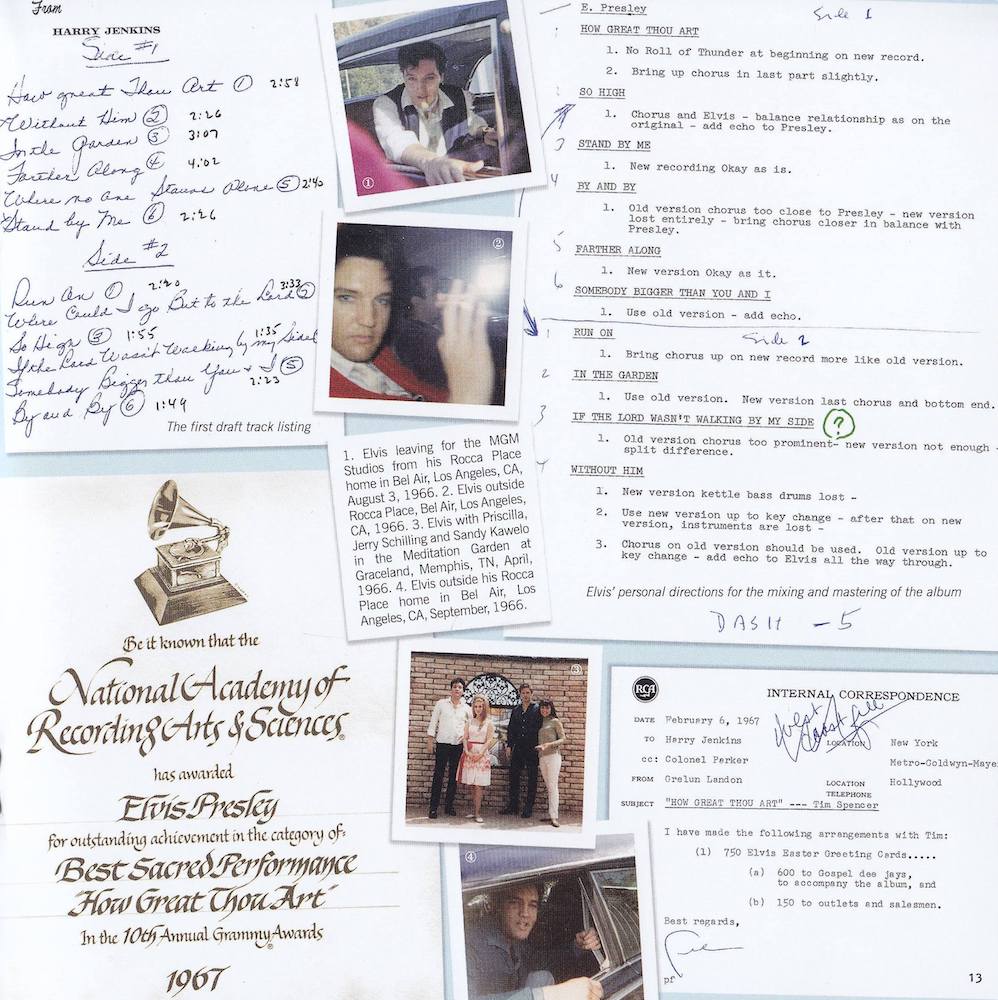 From
HARRY JENKINS
Side #1
How great Thou Art ① 2:58
Without Him ② 2:26
In the Garden ③ 3:07
Farther Along ④ 4:02
Where no one Stands Alone ⑤ 2:40
Stand by Me ⑥ 2:26
Side #2
Run On ① 2:20
Where Could I go But to the Lord ② 3:33
So High ③ 1:55
If the Lord Wasn't Walking by my Side ④ 1:35
Somebody Bigger than You & I ⑤ 2:23
By and By ⑥ 1:49
The first draft track listing
①
②
1. Elvis leaving for the MGM
Studios from his Rocca Place
home in Bel Air, Los Angeles, CA,
August 3, 1966. 2. Elvis outside
Rocca Place, Bel Air, Los Angeles,
CA, 1966. 3. Elvis with Priscilla,
Jerry Schilling and Sandy Kawelo
in the Meditation Garden at
Graceland, Memphis, TN, April,
1966. 4. Elvis outside his Rocca
Place home in Bel Air, Los
Angeles, CA, September, 1966.
E. Presley
Side 1
HOW GREAT THOU ART
1. No Roll of Thunder at beginning on new record.
2. Bring up chorus in last part slightly.
SO HIGH
1. Chorus and Elvis - balance relationship as on the
original - add echo to Presley.
3 STAND BY ME
1. New recording Okay as is.
4 BY AND BY
1. Old version chorus too close to Presley - new version
lost entirely - bring chorus closer in balance with
Presley.
5 FARTHER ALONG
1. New version Okay as it.
6 SOMEBODY BIGGER THAN YOU AND I
1. Use old version - add echo.
1 RUN ON
Side 2
1. Bring chorus up on new record more like old version.
2 IN THE GARDEN
1. Use old version. New version last chorus and bottom end.
3 IF THE LORD WASN'T WALKING BY MY SIDE ?
1. Old version chorus too prominent- new version not enough -
split difference.
4 WITHOUT HIM
1. New version kettle bass drums lost -
2. Use new version up to key change - after that on new
version, instruments are lost -
3. Chorus on old version should be used. Old version up to
key change - add echo to Elvis all the way through.
Elvis' personal directions for the mixing and mastering of the album
DASH - 5
Be it known that the
National Academy of
Recording Arts & Sciences®
has awarded
Elvis Presley
for outstanding achievement in the category of:
Best Sacred Performance
"How Great Thou Art"
In the 10th Annual Grammy® Awards
1967
③
④
RCA
INTERNAL CORRESPONDENCE
West Coast
DATE February 6, 1967
TO Harry Jenkins
LOCATION New York
cc: Colonel Parker
Metro-Goldwyn-Maye
FROM Grelun Landon
LOCATION Hollywood
TELEPHONE
SUBJECT "HOW GREAT THOU ART" --- Tim Spencer
I have made the following arrangements with Tim:
(1) 750 Elvis Easter Greeting Cards.....
(a) 600 to Gospel dee jays,
to accompany the album, and
(b) 150 to outlets and salesmen.
Best regards,
pf
13